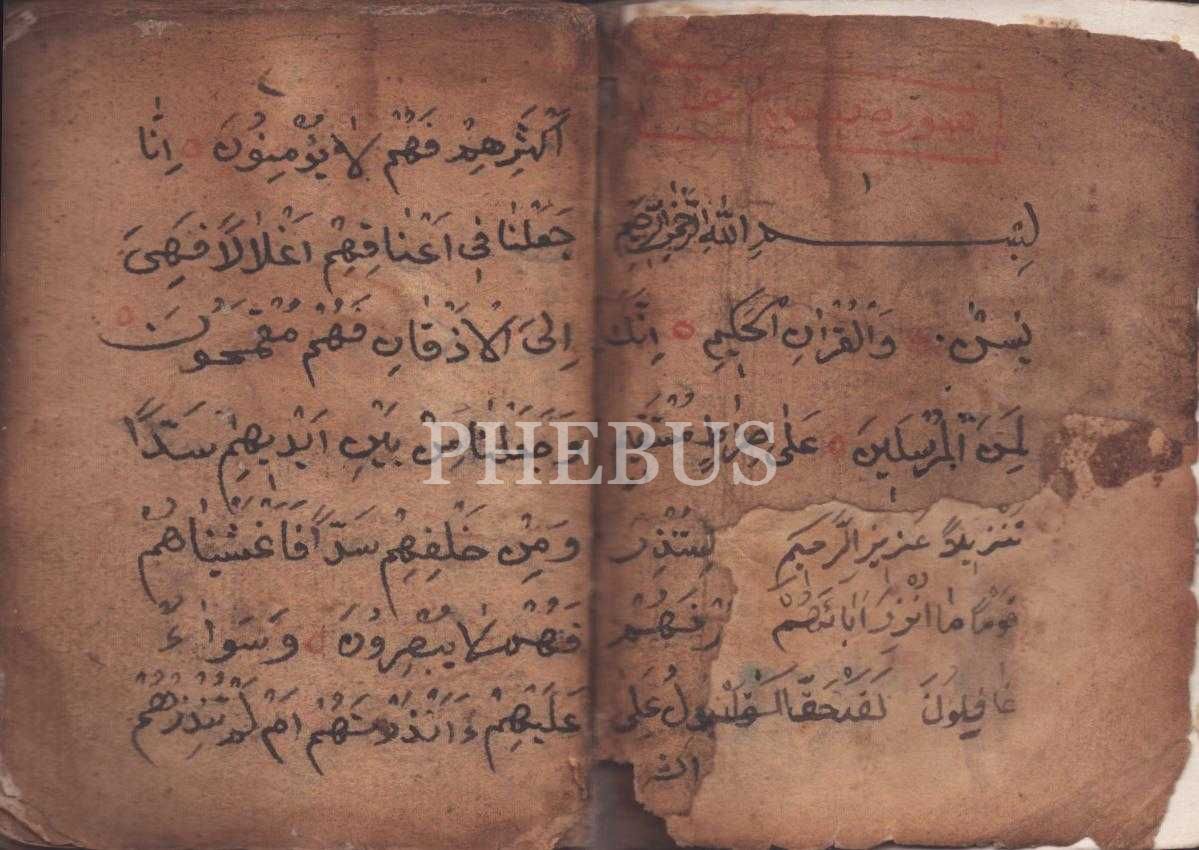 سورة يس
١
بِسْمِ اللهِ الرَّحْمٰنِ الرَّحِيمِ
يٰسٓ وَالْقُرْاٰنِ الْحَكِيمِ اِنَّكَ
لَمِنَ الْمُرْسَلِينَ عَلٰى صِرَاطٍ مُسْتَقِيمٍ
تَنْزِيلَ الْعَزِيزِ الرَّحِيمِ لِتُنْذِرَ
قَوْمًا مَا اُنْذِرَ اٰبَاؤُهُمْ فَهُمْ
غَافِلُونَ لَقَدْ حَقَّ الْقَوْلُ عَلٰى
اكثر
اَكْثَرِهِمْ فَهُمْ لَا يُؤْمِنُونَ اِنَّا
جَعَلْنَا فِى اَعْنَاقِهِمْ اَغْلَالًا فَهِىَ
اِلَى الْاَذْقَانِ فَهُمْ مُقْمَحُونَ
وَجَعَلْنَا مِنْ بَيْنِ اَيْدِيهِمْ سَدًّا
وَمِنْ خَلْفِهِمْ سَدًّا فَاَغْشَيْنَاهُمْ
فَهُمْ لَا يُبْصِرُونَ وَسَوَاءٌ
عَلَيْهِمْ ءَاَنْذَرْتَهُمْ اَمْ لَمْ تُنْذِرْهُمْ
PHEBUS